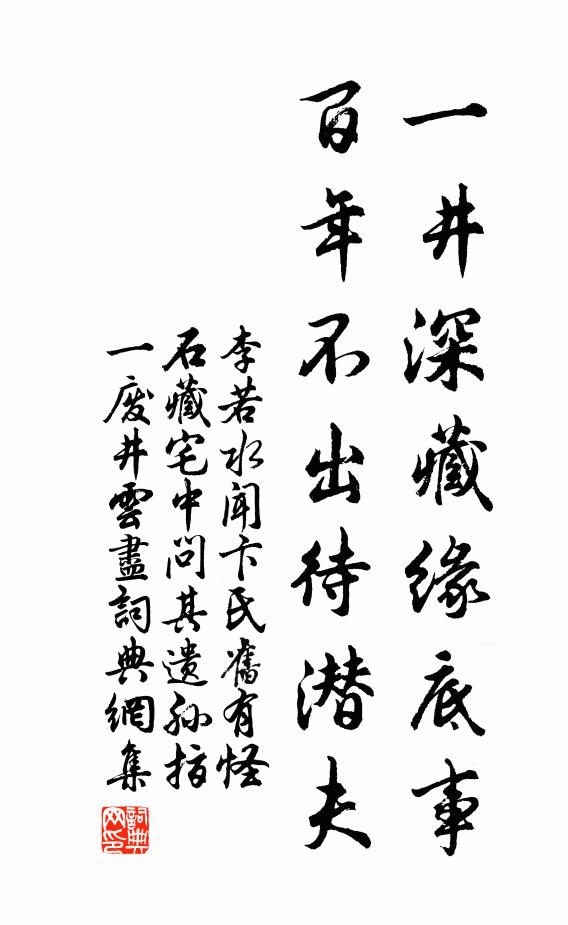 一井深藏缘底事
百年不出待潜夫
李若水闻卞氏舊有怪
石藏宅中问其遗孙指
一废井雲盡詞典網集
詞典
网印